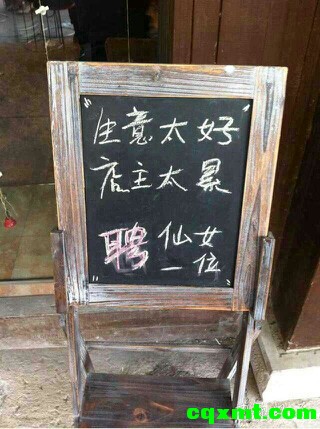 生意太好
店主太累
聘 仙女
一位
cqxmt.com